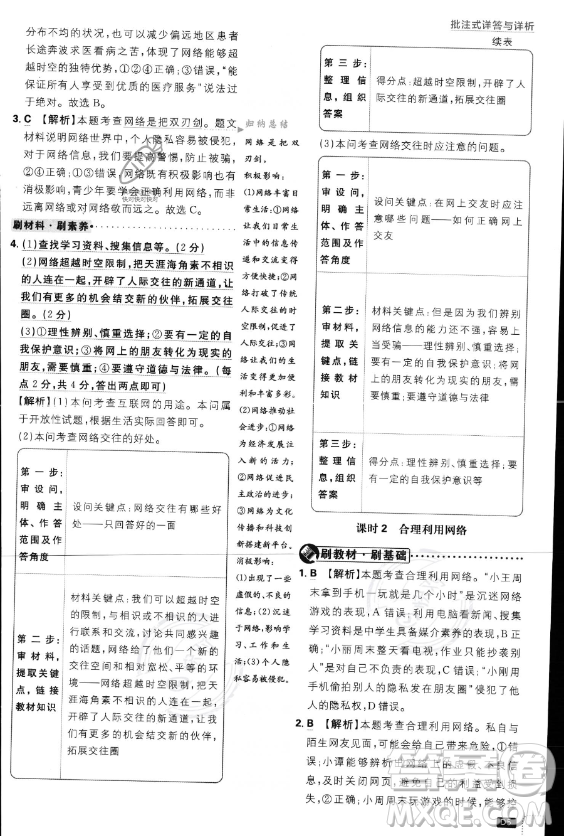 批注式详答与详析
分布不均的状况,可以减少偏远地区患者
长途奔波求医看病之苦,体现了网络超
越时空的独特优势,①②④正确;③错误,“能
让所有人享受到优质的医疗服务”说法过
于绝对。故选B。
3. C 【解析】本题考查网络是把双刃剑。题文
材料说明网络世界中,个人隐私容易被侵
犯,对于网络信息,我们要提高警惕,防止
造成不必要的伤害;同时,网络既有积极也有
消极影响,青少年要正确利用网络,而非
远离网络或对网络敬而远之。故选C。
刷材料·刷素养
4. (1)查找学习资料、搜集信息等。(2分)
(2)网络超越时空限制,把天涯海角素不相识
的人连在一起,开辟了人际交往的新通道,让
我们有更多的机会结交新的伙伴,拓展交往
圈。(2分)
(3)①理性辨别、慎重选择;②要有一定的自
我保护意识;③将网上的朋友转化为现实的
朋友,需慎重;④要遵守道德与法律。(每
点2分,共4分,答出两点即可)
【解析】(1)本问考查互联网的用途。本问属
于开放性试题,根据生活实际回答即可。
(2)本问考查网络交往的好处。
第一步:
审设问,
明确主
体、作答
范围及作
答角度
设问关键点:网络交往有哪些好
处——只回答好的一面
第二步:
审材料,
提取关键
点,链接
教材知识
材料关键点:借助超越时空
的限制,与相识或不相识的人
进行联系和交流,讨论共同感兴趣
的话题,网络给人们提供了一个新
的交往环境和相对宽松、平等的环
境——网络超越时空限制,把天
涯海角素不相识的人连在一起,
开辟了人际交往的新通道,拓展
交往圈
归纳总结
网络是把双
刃剑。
积极影响:
①网络丰富日
常生活;①网络
让我们日常生
活中的信息传
递和交流变得
方便快捷;②网
络打破了传统
人际交往的时
空限制,促进了
人际交往;③网
络让我们的生
活变得更加便
利和丰富多彩。
(2)网络推动社
会进步。①网络
为经济发展注
入新的活力;
②网络促进民
主政治的进步;
③网络为文化
传播和科技创
新搭建新平台。
消极影响:
(1)出现了一些
虚假的、不良的
信息;(2)沉迷
于网络,影响学
习、工作和生
活;(3)个人隐
私容易被侵犯。
续表
第三步:
整理信
息,组织
答案
得分点:超越时空限制,开辟了人
际交往的新通道,拓展交往圈
(3)本问考查网络交往时应注意的问题。
第一步:
审设问,
明确主
体、作答
范围及作
答角度
设问关键点:在网上交友时应注
意哪些问题——如何正确网上交
友
第二步:
审材料,
提取关
键点,链
接教材
知识
材料关键点:但是因为我们辨别
网络信息的能力不强,往往容易
上当受骗——理性辨别、慎重选
择;要有一定的自我保护意识;
要遵守道德与法律
第三步:
整理信
息,组织
答案
得分点:理性辨别、慎重选择,要
有一定的自我保护意识等
课时2 合理利用网络
刷教材·刷基础
1. B 【解析】本题考查合理利用网络。“小王周
末拿到手机一玩就是几个小时”是沉迷网络
游戏的表现,A错误;利用电脑看新闻、搜集
学习资料是中学生具备媒介素养的表现,B
正确;“小丽周末整天看电视,作业完成敷
衍”是对自己不负责的表现,C错误;“小刚用
手机偷拍他人的隐私发在朋友圈”侵犯了他
人的隐私权,D错误。故选B。
2. B 【解析】本题考查合理利用网络。私自与
陌生网友见面,可能会给自己带来危险,①错
误;小谭能够辨析出网上的不良信息,②正
确;小周周末玩游戏的时候,能够控